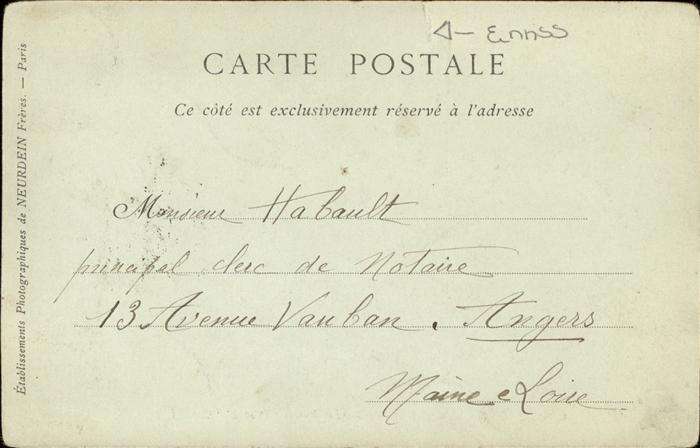 CARTE POSTALE
Ce côté est exclusivement réservé à l'adresse
Monsieur Habault
principal clerc de Notaire
13 Avenue Vauban, Angers
Maine e Loire
Établissements Photographiques de NEURDEIN Frères. — Paris